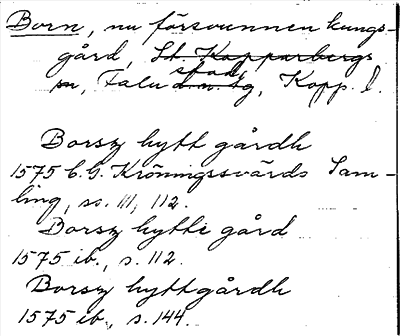 Born, nu försvunnen kungs-
gård, St. Kopparbergs
stad
sn, Falu d.n. tg, Kopp. l.
Borsz hytt gårdh
1575 C.G. Kröningssvärds Sam-
ling, ss. 111, 112.
Borsz hytte gård
1575 ib., s. 112.
Borsz hyttgårdh
1575 ib., s. 144.